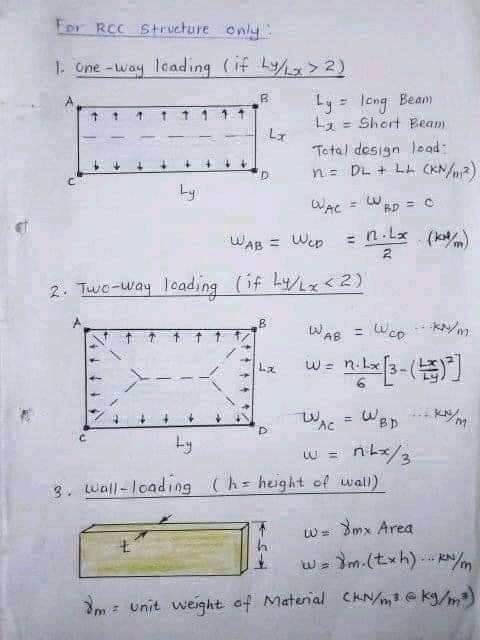 For RCC Structure only:
1. One-way loading (if Ly/Lx > 2)
A B
Lx
C D
Ly
Ly = long Beam
Lx = Short Beam
Total design load:
n = DL + LL (KN/m²)
WAC = WBD = 0
WAB = WCD = n.Lx/2 (kN/m)
2. Two-way loading (if Ly/Lx < 2)
A B
Lx
C D
Ly
WAB = WCD ... kN/m
W = n.Lx/6 [3-(Lx/Ly)²]
WAC = WBD ... kN/m
w = n.Lx/3
3. Wall-loading (h = height of wall)
t
h
w = γm x Area
w = γm.(t x h) ... kN/m
γm = unit weight of Material (KN/m³ @ kg/m³)